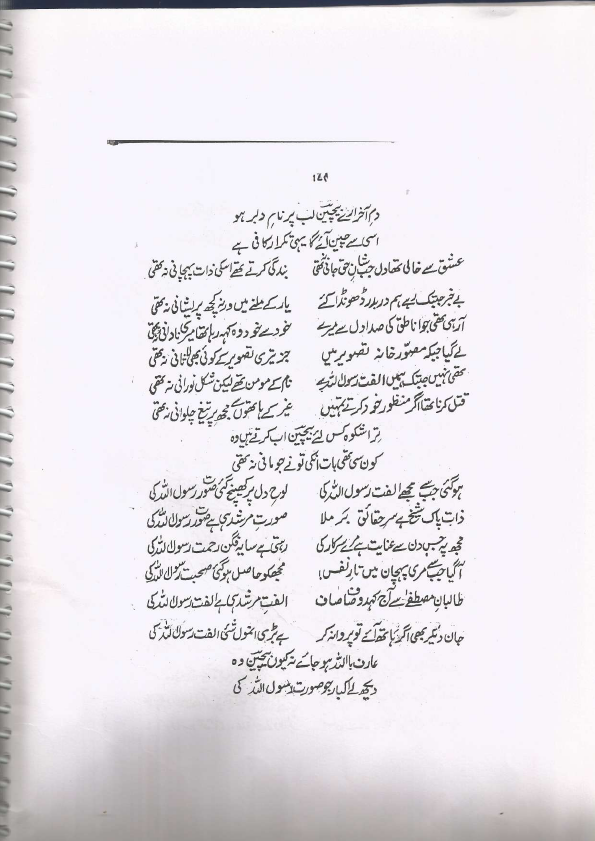 ۱۴۹
دمِ آخر اے بیچین لب پر نامِ دلبر ہو
اسی سے چین آئے گا یہی تکرار کافی ہے
عشق سے خالی تھا دل جب شانِ حق جانی نہ تھی بندگی کرتے تھے اسکی ذات پہچانی نہ تھی
بے خبر جبتک رہے ہم در بدر ڈھونڈا کئے یار کے ملنے میں ورنہ کچھ پریشانی نہ تھی
آرہی تھی جو اناطق کی صدا دل سے مرے خود سے خود وہ کہہ رہا تھا میری نادانی نہ تھی
لے گیا جبکہ مصور خانہ تصویر میں جز تیری تصویر کے کوئی بھی لاثانی نہ تھی
تھی نہیں جبتک ہمیں الفت رسول اللہ سے نام کے مومن تھے لیکن شکل نورانی نہ تھی
قتل کرنا تھا اگر منظور خود کرتے ہمیں غیر کے ہاتھوں سے مجھ پر تیغ چلوانی نہ تھی
ترا شکوہ کس لئے بیچین اب کرتے ہیں وہ
کون سی تھی بات انکی تو نے جو مانی نہ تھی
ہوگئی جب سے مجھے الفت رسول اللہ کی لوحِ دل پر کھنچ گئی صورت رسول اللہ کی
ذاتِ پاک شیخ ہے سرِ حقائق بر ملا صورتِ مرشد ہی ہے صورت رسول اللہ کی
مجھ پہ جس دن سے عنایت ہے مرے سرکار کی رہتی ہے سایہ فگن رحمت رسول اللہ کی
آگیا جب سے مری پہچان میں تارِ نفس! مجھکو حاصل ہوگئی صحبت رسول اللہ کی
طالبانِ مصطفےٰ سے آج کہدو صاف صاف الفتِ مرشد ہی ہے الفت رسول اللہ کی
جان دیکر بھی اگر ہاتھ آئے تو پروا نہ کر ہے بڑی انمول شئی الفت رسول اللہ کی
عارف باللہ ہو جائے نہ کیوں بیچین وہ
دیکھ لے اکبار جو صورت رسول اللہ کی